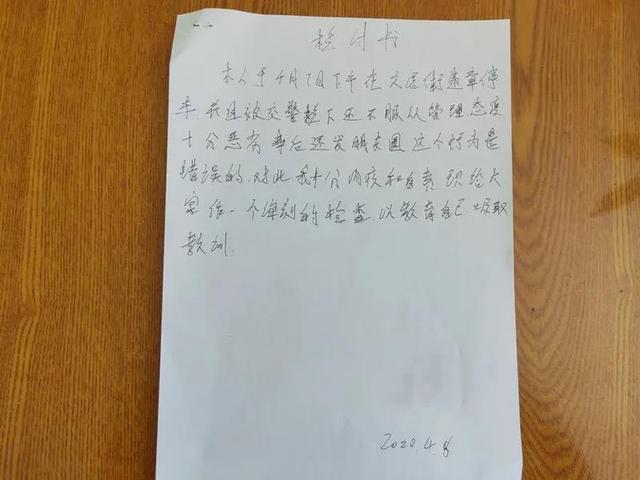 检讨书
本人于4月7日下午在文居街违章停
车.并且被交警拦下还不服从管理态度
十分恶劣 事后还发朋友圈.这个行为是
错误的.对此我十分内疚和自责 现给大
家作一个深刻的检查.以教育自己.吸取
教训.
2020.4.8